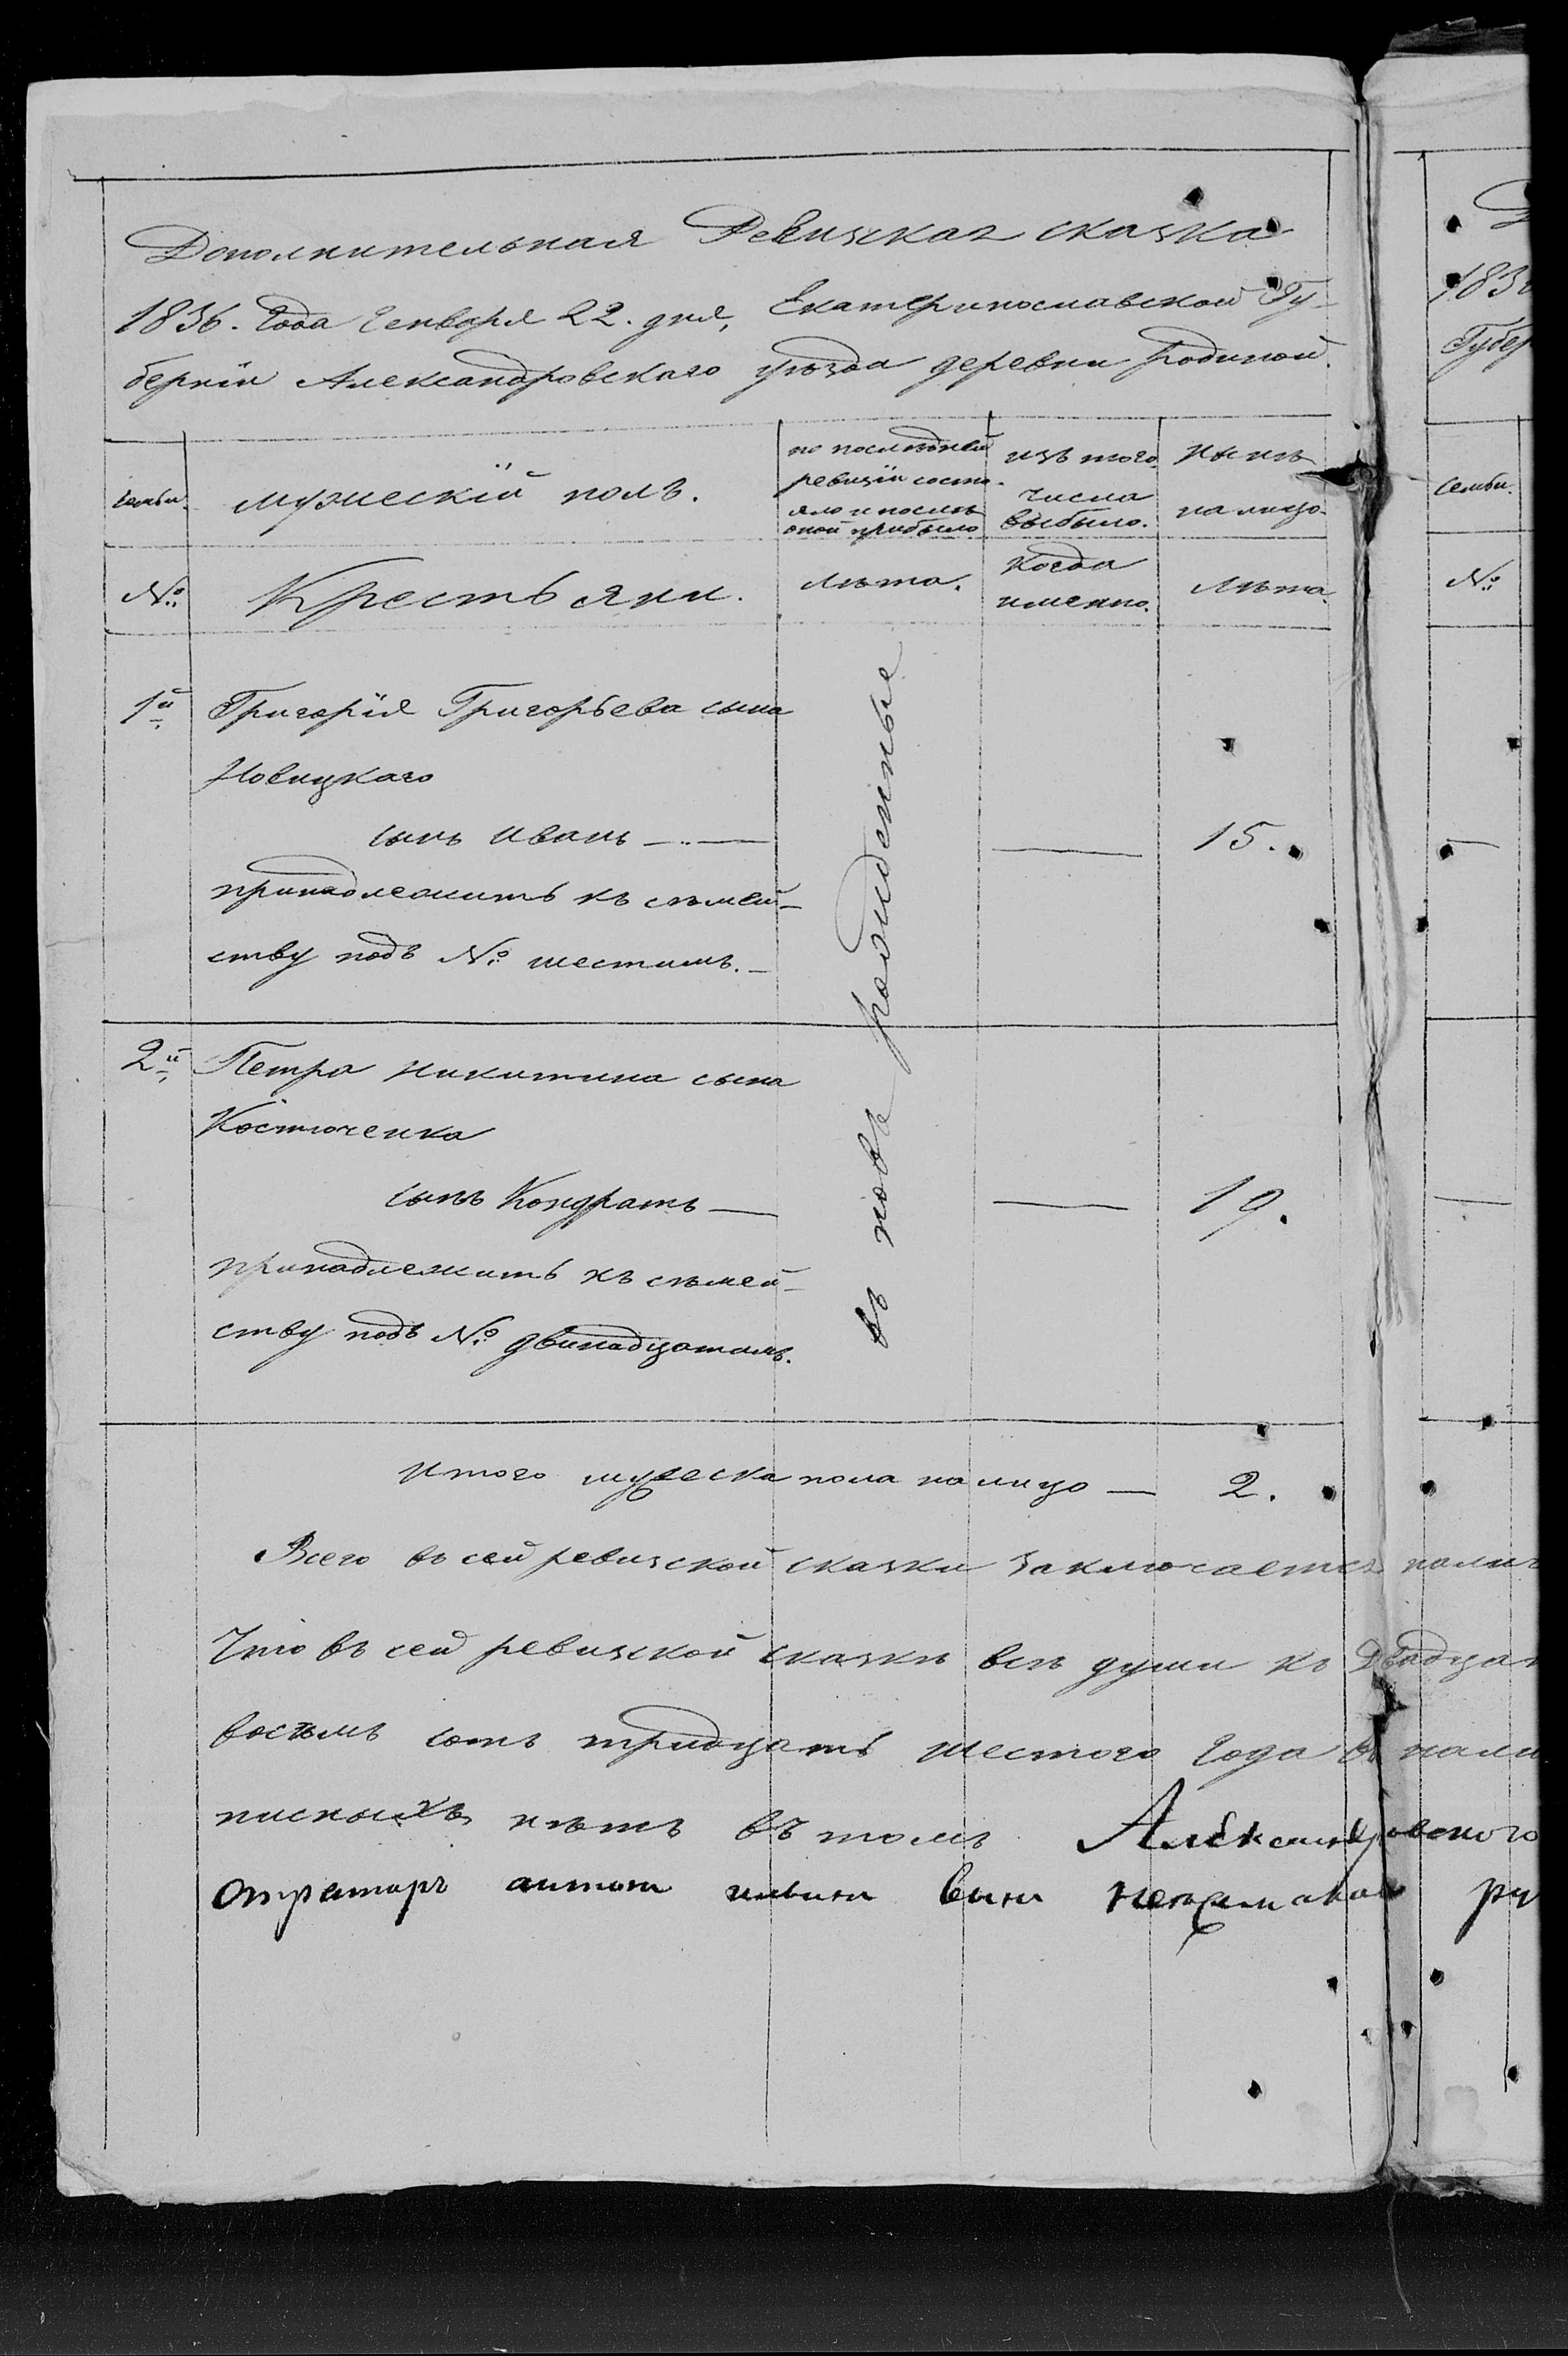 Дополнительная Ревизкая сказка
1836. Года Генваря 22. дня, Екатеринославской Гу-
бернiи Александровскаго уѣзда деревни Родиной.
семьи. мужескiй полъ. по послѣдней ревизiи состо- яло и послѣ оной прибыло изъ того числа выбыло. Нынѣ на лицо.
№ Крестьяни. лѣта. Когда именно. Лѣта.
1й Григорiя Григорьева сына
Новицкаго
сынъ Иванъ — — 15.
принадлежитъ къ сѣмей-
ству подъ № шестымъ.
въ новѣ рожденные
2й Петра Никитина сына
Костюченка
сынъ Кондратъ — — 19.
принадлежитъ къ сѣмей-
ству подъ № двинадцатымъ.
Итого мужеска пола на лицо — 2.
Всего въ сей ревизской сказки заключается налич
Что въ сей ревизкой сказкѣ всѣ души къ Двадцат
восѣмъ сотъ тридцать шестого Года нали
писныхъ нѣтъ въ томъ Александровского
руч
семьи.
№
183
Губер